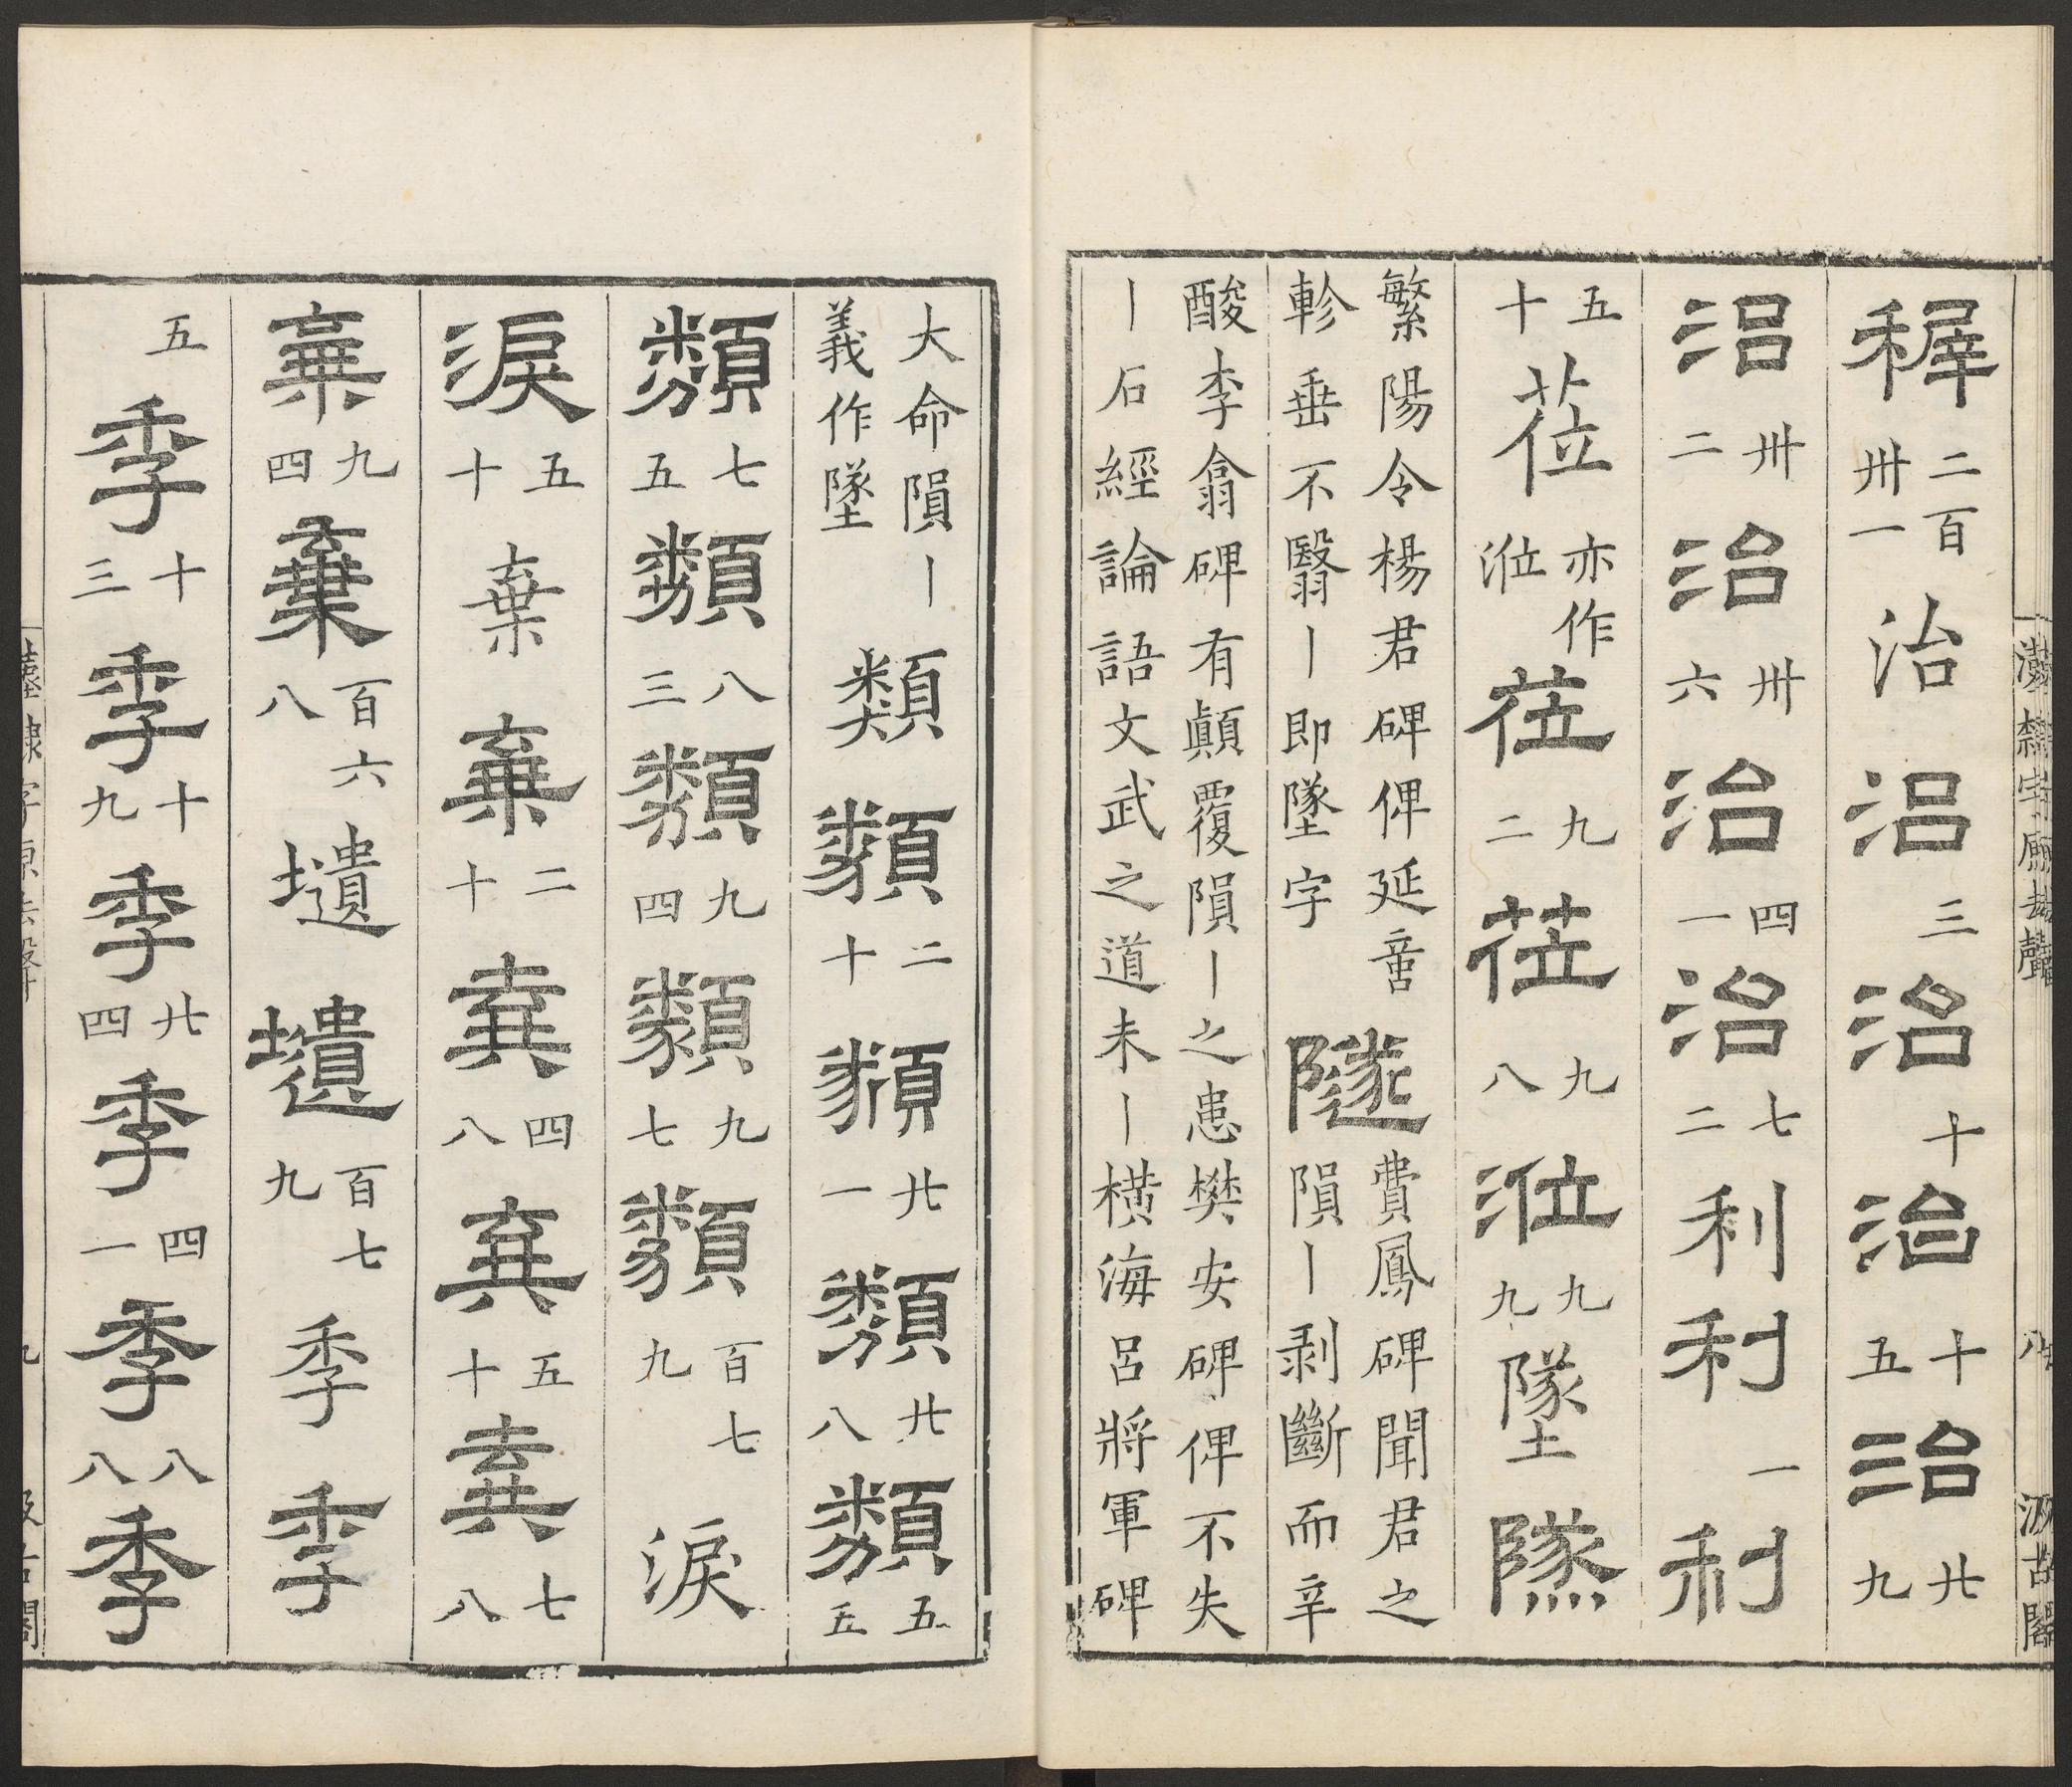 稺二百卅一治治三治十治十五治廿九
治卅二治卅六治四一治七二利利一利
五十莅亦作涖莅九二莅九八涖九九墜隊
繁陽令楊君碑俾延𠶷隧費鳳碑聞君之
軫垂不翳丨即墜字隕丨剥斷而辛
酸李翕碑有顛覆隕丨之患樊安碑俾不失
丨石經論語文武之道未丨橫海呂將軍碑
漢隸字源去聲
八
汲古閣
大命隕丨義作墜類類二十類廿一類廿八類五五
類七五類八三類九四類九七類百七九淚
淚五十棄棄二十棄四八棄五十棄七八
棄九四棄百六八壝壝百七九季季
五季十三季十九季廿四季四一季八八季
漢隸字源去聲
九
汲古閣